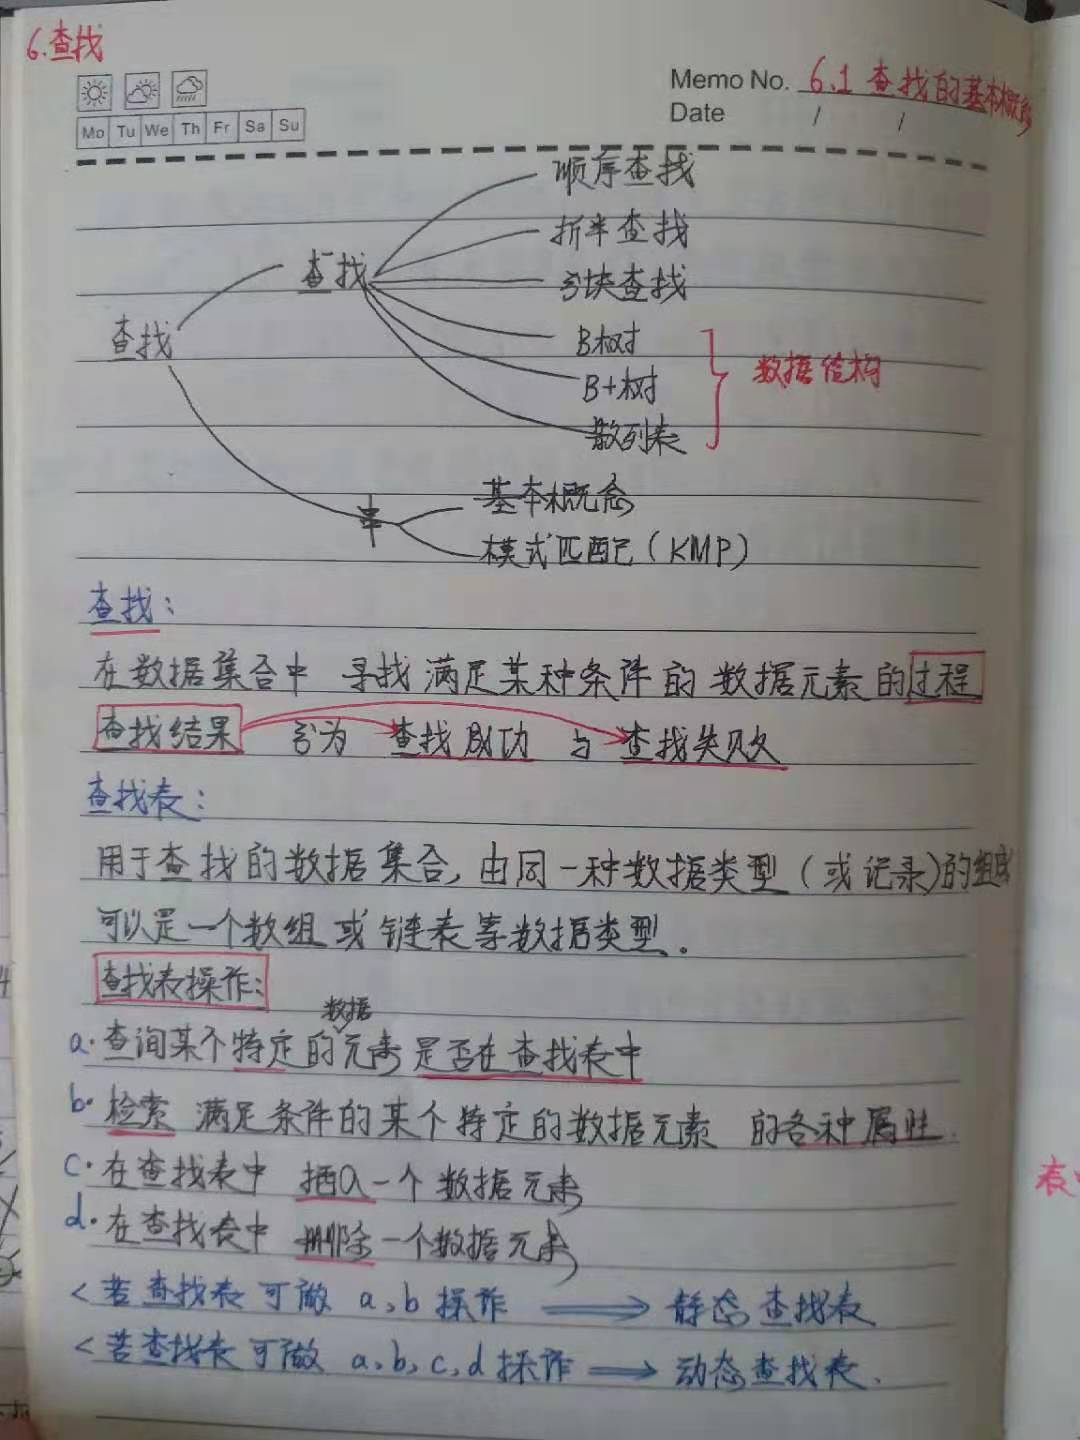 6.查找
Memo No. 6.1 查找的基本概念
Date / /
Mo Tu We Th Fr Sa Su
顺序查找
折半查找
查找
分块查找
查找
B树
数据结构
B+树
散列表
基本概念
串
模式匹配(KMP)
查找:
在数据集合中 寻找满足某种条件的数据元素的过程
查找结果 分为 查找成功 与 查找失败
查找表:
用于查找的数据集合,由同一种数据类型(或记录)的组成
可以是一个数组或链表等数据类型.
查找表操作:
数据
a.查询某个特定的元素是否在查找表中
b.检索 满足条件的某个特定的数据元素 的各种属性.
c.在查找表中 插入一个数据元素
d.在查找表中 删除一个数据元素
<若查找表可做 a、b操作 ⟹ 静态查找表
<若查找表可做 a、b、c、d操作 ⟹ 动态查找表.